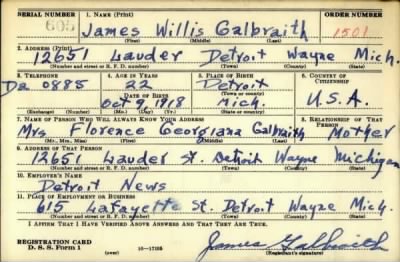 SERIAL NUMBER 1. NAME (Print) ORDER NUMBER
605 James Willis Galbraith 1501
(First) (Middle) (Last)
2. ADDRESS (Print)
12651 Lauder Detroit Wayne Mich.
(Number and street or R. F. D. number) (Town) (County) (State)
3. TELEPHONE 4. AGE IN YEARS 5. PLACE OF BIRTH 6. COUNTRY OF CITIZENSHIP
Da 0885 22 Detroit
(Town or county)
DATE OF BIRTH
Oct 9, 1918 Mich. U.S.A.
(Exchange) (Number) (Mo.) (Day) (Yr.) (State or country)
7. NAME OF PERSON WHO WILL ALWAYS KNOW YOUR ADDRESS 8. RELATIONSHIP OF THAT PERSON
Mrs Florence Georgiana Galbraith Mother
(Mr., Mrs., Miss) (First) (Middle) (Last)
9. ADDRESS OF THAT PERSON
12651 Lauder St. Detroit Wayne Michigan
(Number and street or R. F. D. number) (Town) (County) (State)
10. EMPLOYER'S NAME
Detroit News
11. PLACE OF EMPLOYMENT OR BUSINESS
615 Lafayette St. Detroit Wayne Mich.
(Number and street or R. F. D. number) (Town) (County) (State)
I AFFIRM THAT I HAVE VERIFIED ABOVE ANSWERS AND THAT THEY ARE TRUE.
REGISTRATION CARD
D. S. S. Form 1 (over) 16-17105 James Galbraith
(Registrant's signature)